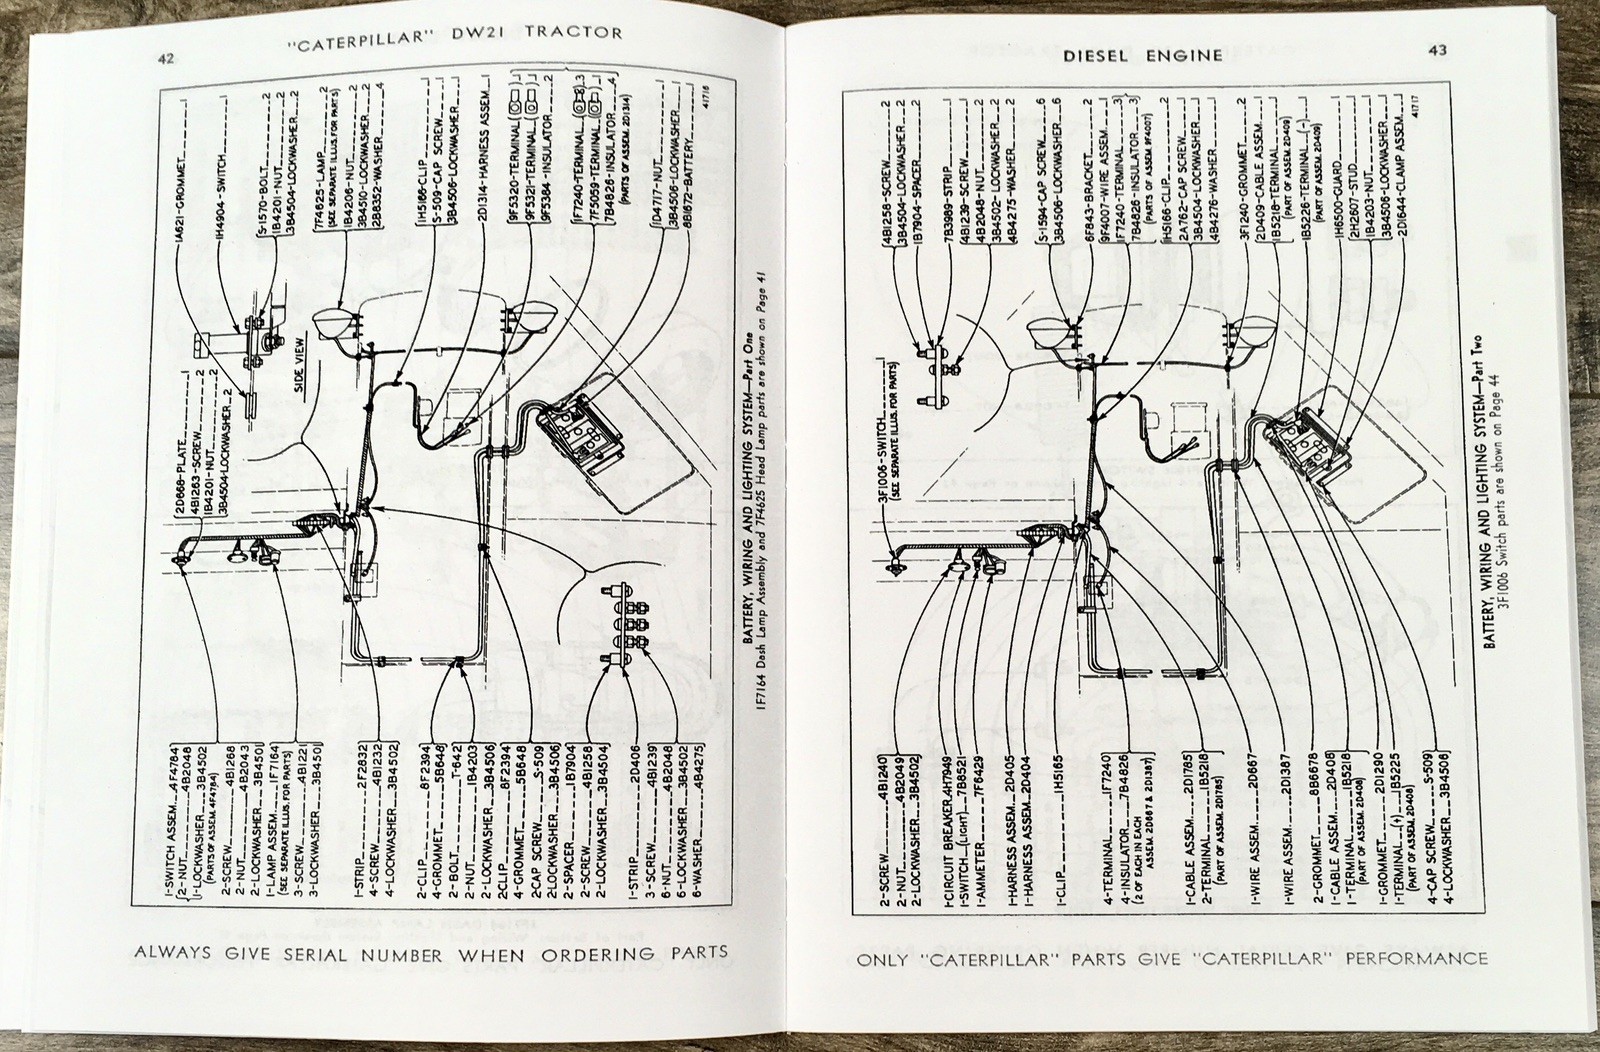 42
"CATERPILLAR" DW21 TRACTOR
1A621-GROMMET 1
1H4904-SWITCH 1
S-1570-BOLT 2
1B4201-NUT 2
3B4504-LOCKWASHER 2
7F4625-LAMP 2
(SEE SEPARATE ILLUS. FOR PARTS)
1B4206-NUT 2
3B4510-LOCKWASHER 2
2B8352-WASHER 4
1H5166-CLIP 1
S-509-CAP SCREW 1
3B4506-LOCKWASHER 1
2D1314-HARNESS ASSEM. 1
9F5320-TERMINAL 1
9F5321-TERMINAL 1
9F5384-INSULATOR 2
1F7240-TERMINAL 3
7F5059-TERMINAL 1
7B4826-INSULATOR 4
(PARTS OF ASSEM. 2D1314)
1D4717-NUT 1
3B4506-LOCKWASHER 1
8B1872-BATTERY 1
41716
2D668-PLATE 1
4B1263-SCREW 2
1B4201-NUT 2
3B4504-LOCKWASHER 2
SIDE VIEW
1-SWITCH ASSEM. 4F4784
2-NUT 4B2048
1-LOCKWASHER 3B4502
(PARTS OF ASSEM. 4F4784)
2-SCREW 4B1268
2-NUT 4B2043
2-LOCKWASHER 3B4501
1-LAMP ASSEM. 1F7164
(SEE SEPARATE ILLUS. FOR PARTS)
3-SCREW 4B1221
3-LOCKWASHER 3B4501
1-STRIP 2F2832
4-SCREW 4B1232
4-LOCKWASHER 3B4502
2-CLIP 8F2394
4-GROMMET 5B648
2-BOLT T-642
2-NUT 1B4203
2-LOCKWASHER 3B4506
2CLIP 8F2394
4-GROMMET 5B648
2CAP SCREW S-509
2LOCKWASHER 3B4506
2-SPACER 1B7904
2-SCREW 4B1258
2-LOCKWASHER 3B4504
1-STRIP 2D406
3-SCREW 4B1239
6-NUT 4B2048
6-LOCKWASHER 3B4502
6-WASHER 4B4275
BATTERY, WIRING AND LIGHTING SYSTEM—Part One
1F7164 Dash Lamp Assembly and 7F4625 Head Lamp parts are shown on Page 41
ALWAYS GIVE SERIAL NUMBER WHEN ORDERING PARTS
DIESEL ENGINE
43
4B1258-SCREW 2
3B4504-LOCKWASHER 2
1B7904-SPACER 2
7B3989-STRIP 1
4B1239-SCREW 1
4B2048-NUT 2
3B4502-LOCKWASHER 2
4B4275-WASHER 2
S-1594-CAP SCREW 6
3B4506-LOCKWASHER 6
6F843-BRACKET 2
9F4007-WIRE ASSEM. 1
1F7240-TERMINAL 3
7B4826-INSULATOR 3
(PARTS OF ASSEM. 9F4007)
1H5166-CLIP 2
2A762-CAP SCREW 1
3B4504-LOCKWASHER 1
4B4276-WASHER 1
3F1240-GROMMET 2
2D409-CABLE ASSEM. 1
1B5218-TERMINAL 1
(PART OF ASSEM. 2D409)
1B5226-TERMINAL (-) 1
(PART OF ASSEM. 2D409)
1H6500-GUARD 1
2H2607-STUD 1
1B4203-NUT 1
3B4506-LOCKWASHER 1
2D1644-CLAMP ASSEM. 1
41717
3F1006-SWITCH 1
(SEE SEPARATE ILLUS. FOR PARTS)
2-SCREW 4B1240
2-NUT 4B2049
2-LOCKWASHER 3B4502
1-CIRCUIT BREAKER 4H7949
1-SWITCH (LIGHT) 7B8521
1-AMMETER 7F6429
1-HARNESS ASSEM. 2D405
1-HARNESS ASSEM. 2D404
1-CLIP 1H5165
4-TERMINAL 1F7240
4-INSULATOR 7B4826
(2 OF EACH IN EACH
ASSEM. 2D667 & 2D1387)
1-CABLE ASSEM. 2D1785
2-TERMINAL 1B5218
(PART OF ASSEM. 2D1785)
1-WIRE ASSEM. 2D667
1-WIRE ASSEM. 2D1387
2-GROMMET 8B6678
1-CABLE ASSEM. 2D408
1-TERMINAL 1B5218
(PART OF ASSEM. 2D408)
1-GROMMET 2D1290
1-TERMINAL (+) 1B5225
(PART OF ASSEM. 2D408)
4-CAP SCREW S-509
4-LOCKWASHER 3B4506
BATTERY, WIRING AND LIGHTING SYSTEM—Part Two
3F1006 Switch parts are shown on Page 44
ONLY "CATERPILLAR" PARTS GIVE "CATERPILLAR" PERFORMANCE